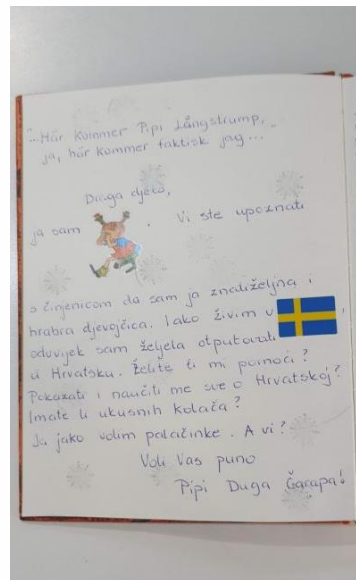 "...Här kommer Pipi Långstrump,
ja, här kommer faktisk jag..."
Draga djeco,
ja sam . Vi ste upoznati
s činjenicom da sam ja znatiželjna i
hrabra djevojčica. Iako živim u ,
oduvijek sam željela otputovati
u Hrvatsku. Želite li mi pomoći?
Pokazati i naučiti me sve o Hrvatskoj?
Imate li ukusnih kolača?
Ja jako volim palačinke. A vi?
Voli Vas puno
Pipi Duga Čarapa!